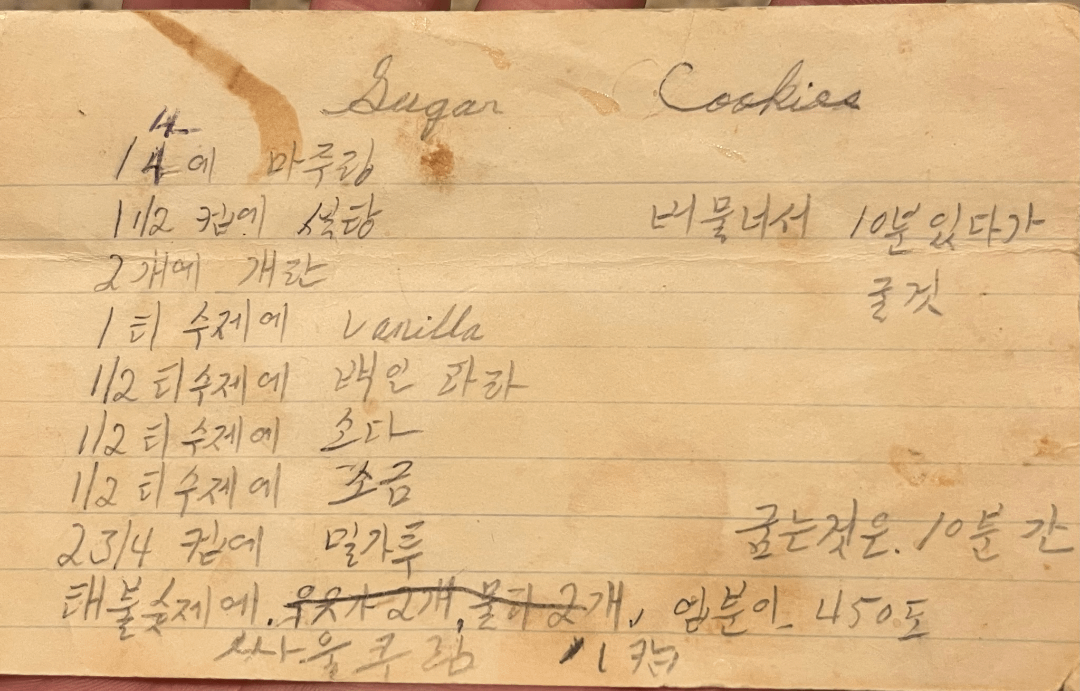 Sugar Cookies
4
1 4 에 마쿠링
1 1/2 컵에 설탕
버물너서 10분있다가
2개에 개란
굴것
1 티 수제에 Vanilla
1/2 티수제에 백인 파라
1/2 티 수제에 소다
1/2 티수제에 소금
2 3/4 컵에 밀가투
굽는것은. 10분 간
태불숫제에. 우웃가 2개, 물타 2개, 임분이 450도
싸울쿠림 1 컵